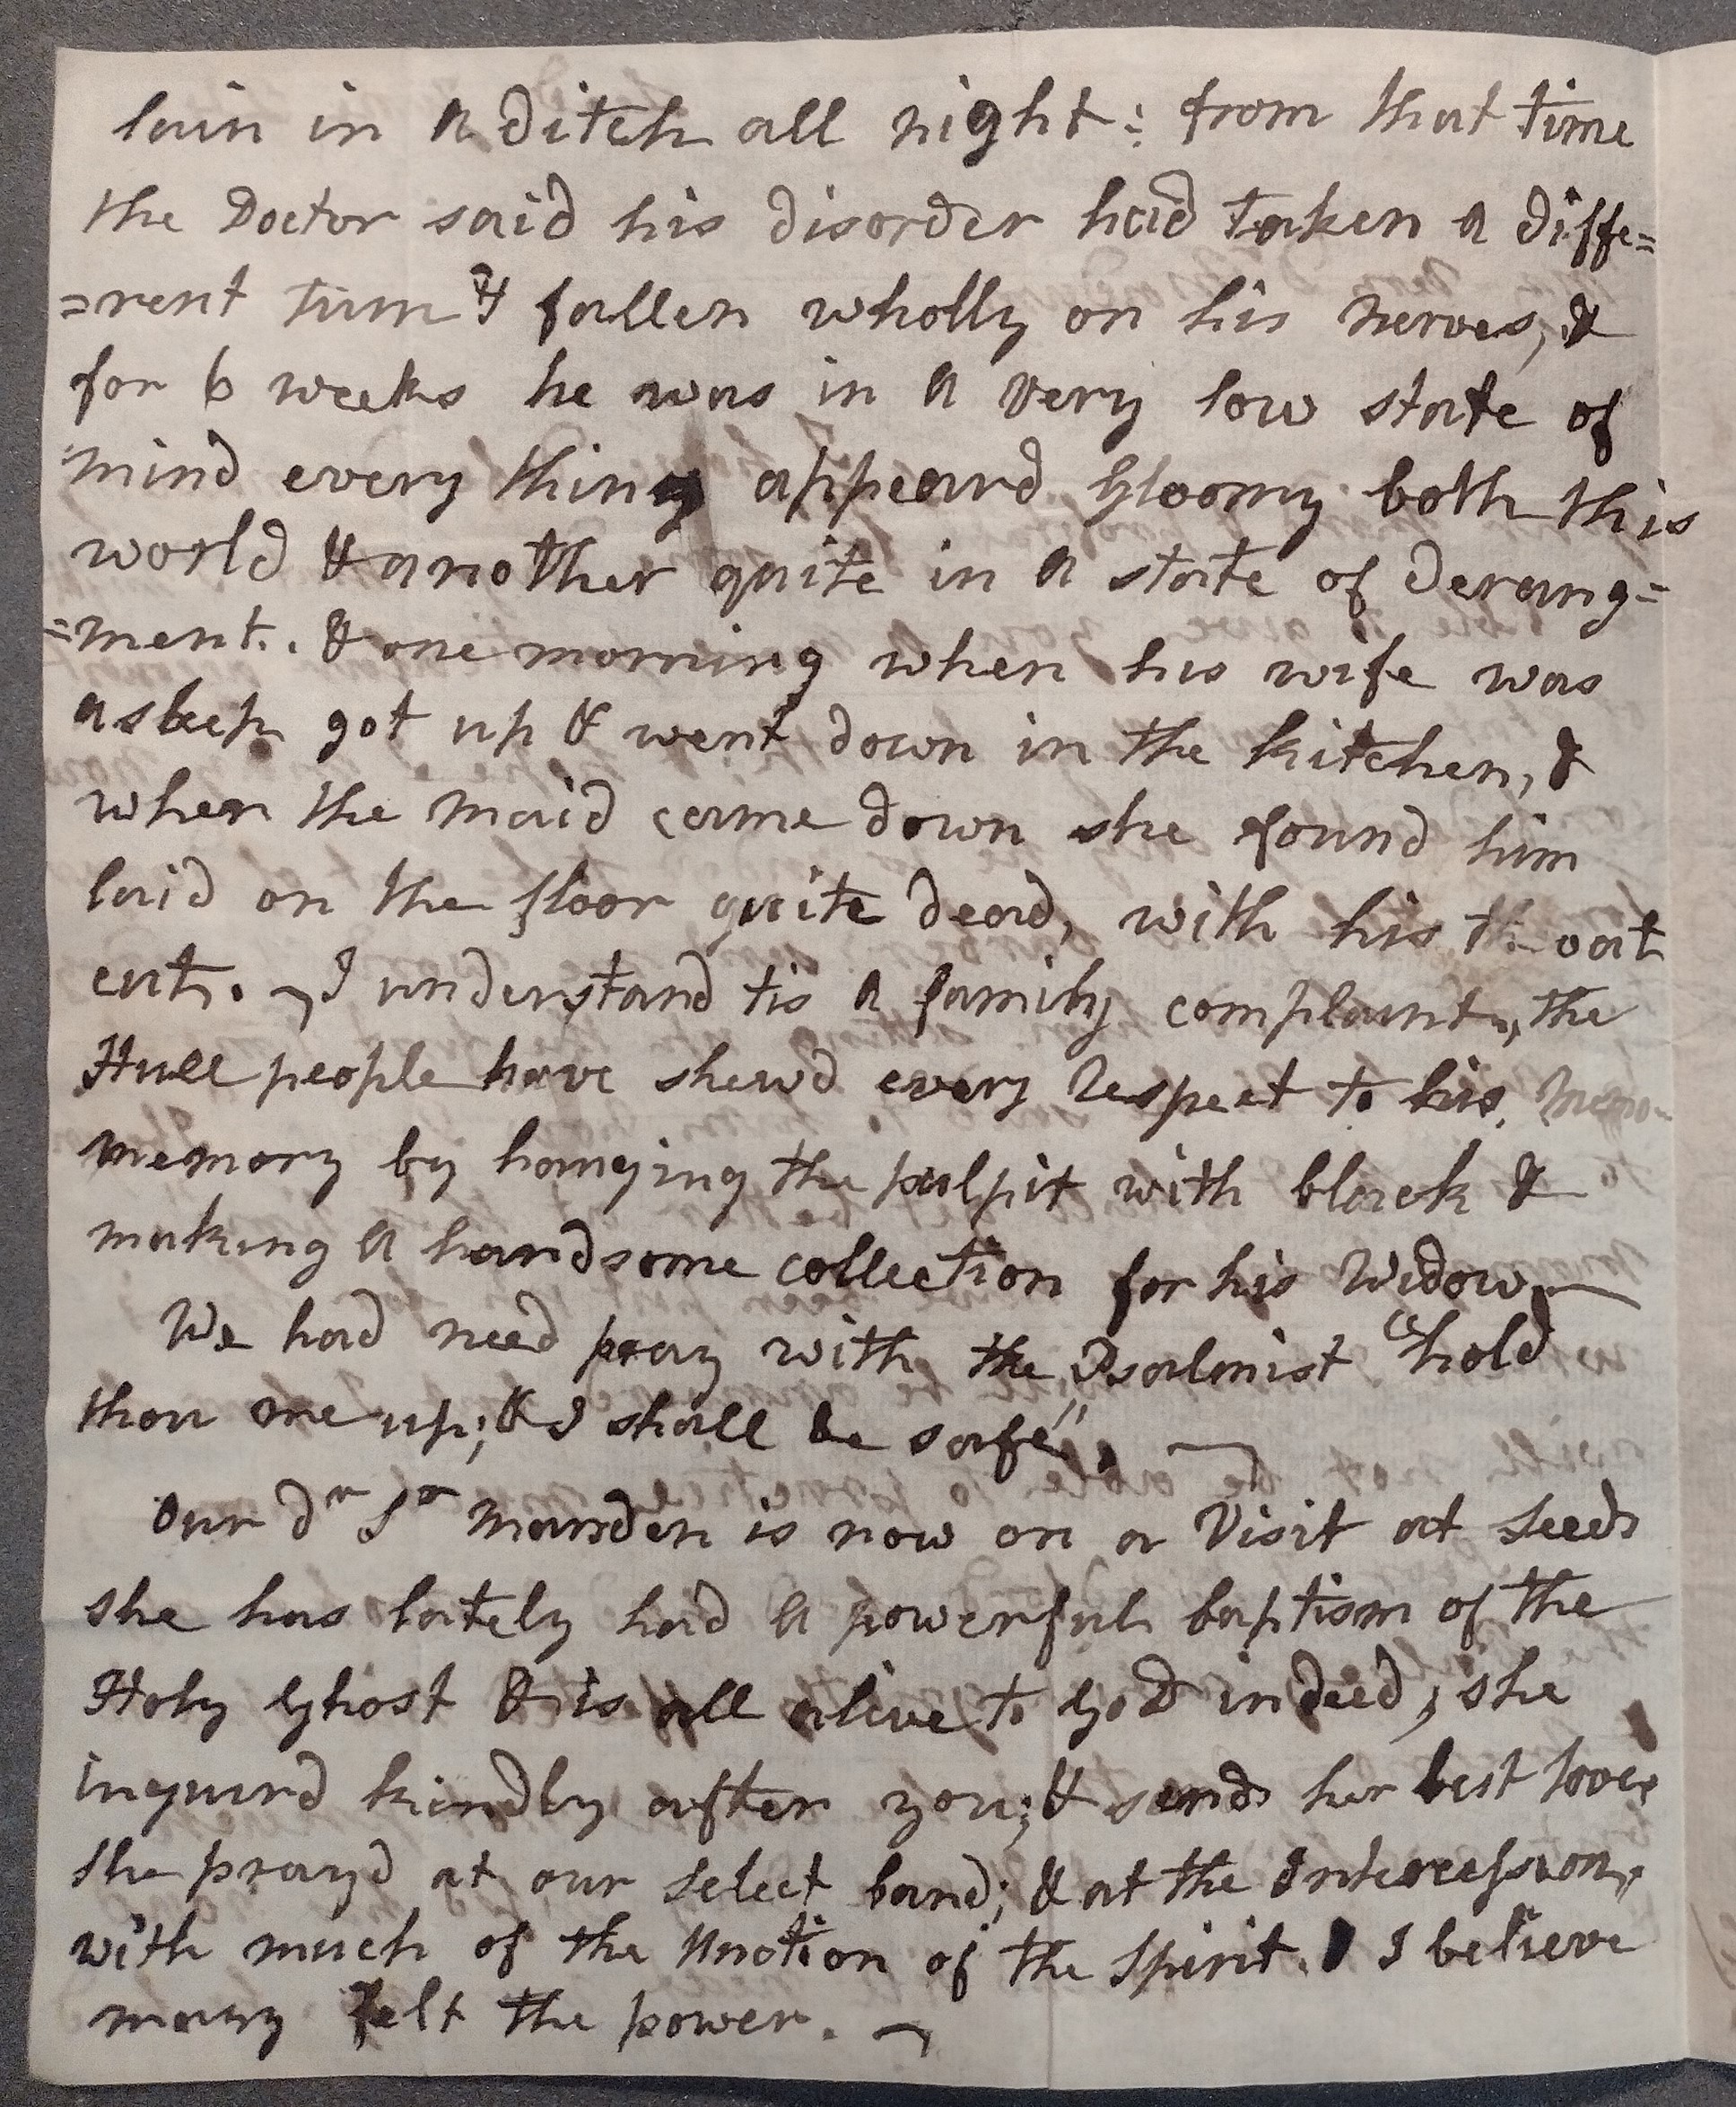 lain in a ditch all night: from that time
the Doctor said his disorder had taken a diffe=
=rent turn & fallen wholly on his nerves, &
for 6 weeks he was in a very low state of
mind every thing appeard gloomy both this
world & another quite in a state of derang=
=ment. & one morning when his wife was
asleep got up & went down in the kitchen, &
when the maid came down she found him
laid on the floor quite dead, with his throat
cut. I understand tis a family complaint, the
Hull people have shew'd every respect to his
memory by hanging the pulpit with black &
making a handsome collection for his Widow
We had need pray with the Psalmist "hold
thou me up; & I shall be safe".
Our dr Sr Marsden is now on a Visit at Leeds
she has lately had a powerful baptism of the
Holy Ghost & is all alive to God indeed, she
inquird kindly after you; & sends her best love
she pray'd at our select band; & at the Intercession,
with much of the Unction of the Spirit. I believe
many felt the power.